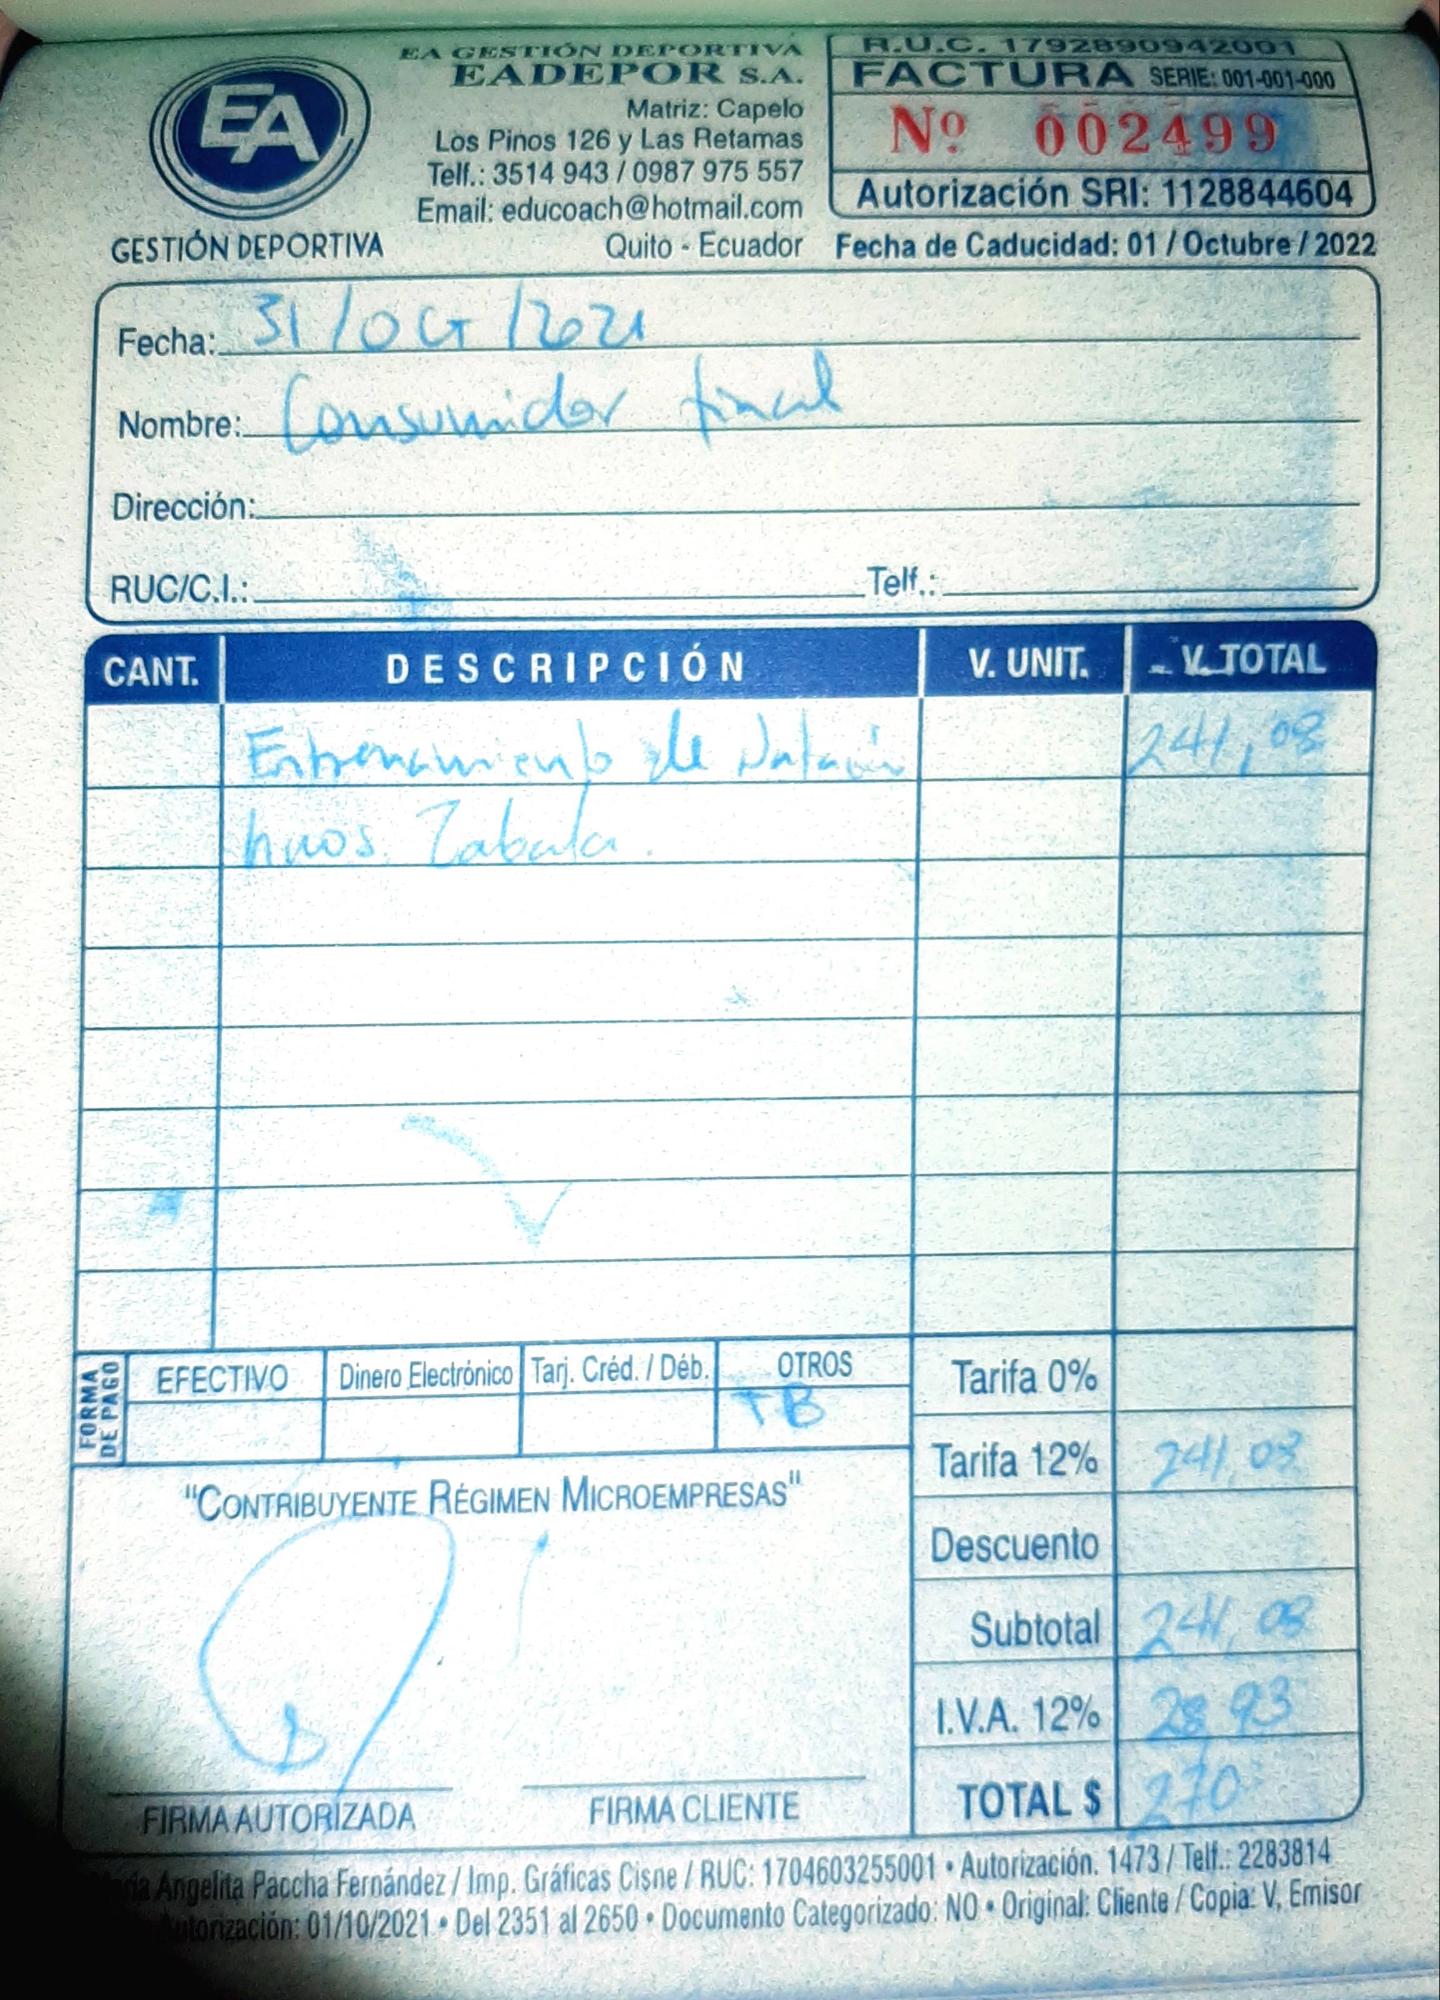 EA GESTIÓN DEPORTIVA
EADEPOR S.A.
Matriz: Capelo
Los Pinos 126 y Las Retamas
Telf.: 3514 943 / 0987 975 557
Email: educoach@hotmail.com
Quito - Ecuador
EA
GESTIÓN DEPORTIVA
R.U.C. 1792890942001
FACTURA SERIE: 001-001-000
Nº 002499
Autorización SRI: 1128844604
Fecha de Caducidad: 01 / Octubre / 2022
Fecha: 31/OCT/2021
Nombre: Consumidor final
Dirección:
RUC/C.I.: Telf.:
CANT. DESCRIPCIÓN V. UNIT. V. TOTAL
Entrenamiento de Natación 241,08
hnos. Zabala.
FORMA DE PAGO
EFECTIVO Dinero Electrónico Tarj. Créd. / Déb. OTROS
TB
Tarifa 0%
Tarifa 12% 241,08
Descuento
Subtotal 241,08
I.V.A. 12% 28,93
TOTAL $ 270
"CONTRIBUYENTE RÉGIMEN MICROEMPRESAS"
FIRMA AUTORIZADA FIRMA CLIENTE
Angelita Paccha Fernández / Imp. Gráficas Cisne / RUC: 1704603255001 • Autorización. 1473 / Telf.: 2283814
Autorización: 01/10/2021 • Del 2351 al 2650 • Documento Categorizado: NO • Original: Cliente / Copia: V, Emisor